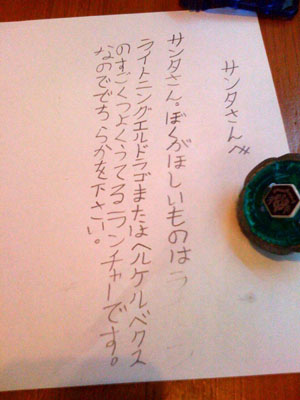 サンタさんへ
サンタさん。ぼくがほしいものは
ライトニングエルドラゴまたはヘルケルベクス
のすごくつよくうてるランチャーです。
なのでどちらかを下さい。